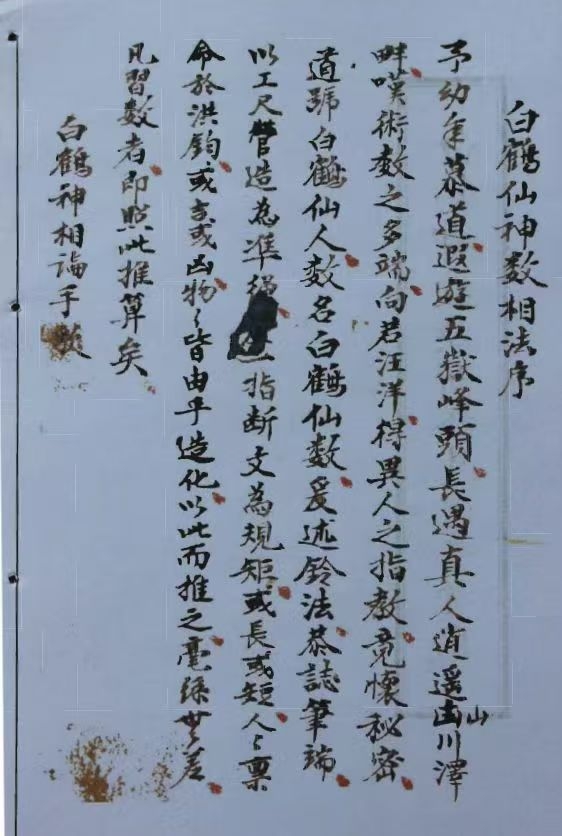 白鶴仙神数相法序
予幼年慕道遐遊五嶽峰頭長遇真人逍遥山川澤
畔嘆術数之多端向若汪洋得異人之指教竟懷秘密
道號白鶴仙人数名白鶴仙数爰述鈴法恭誌筆端
以工尺營造為準繩指断文為規矩或長或短人々禀
命於洪鈞或吉或凶物々皆由乎造化以此而推之毫絲無差
凡習数者印照此推算矣
白鶴神相論手